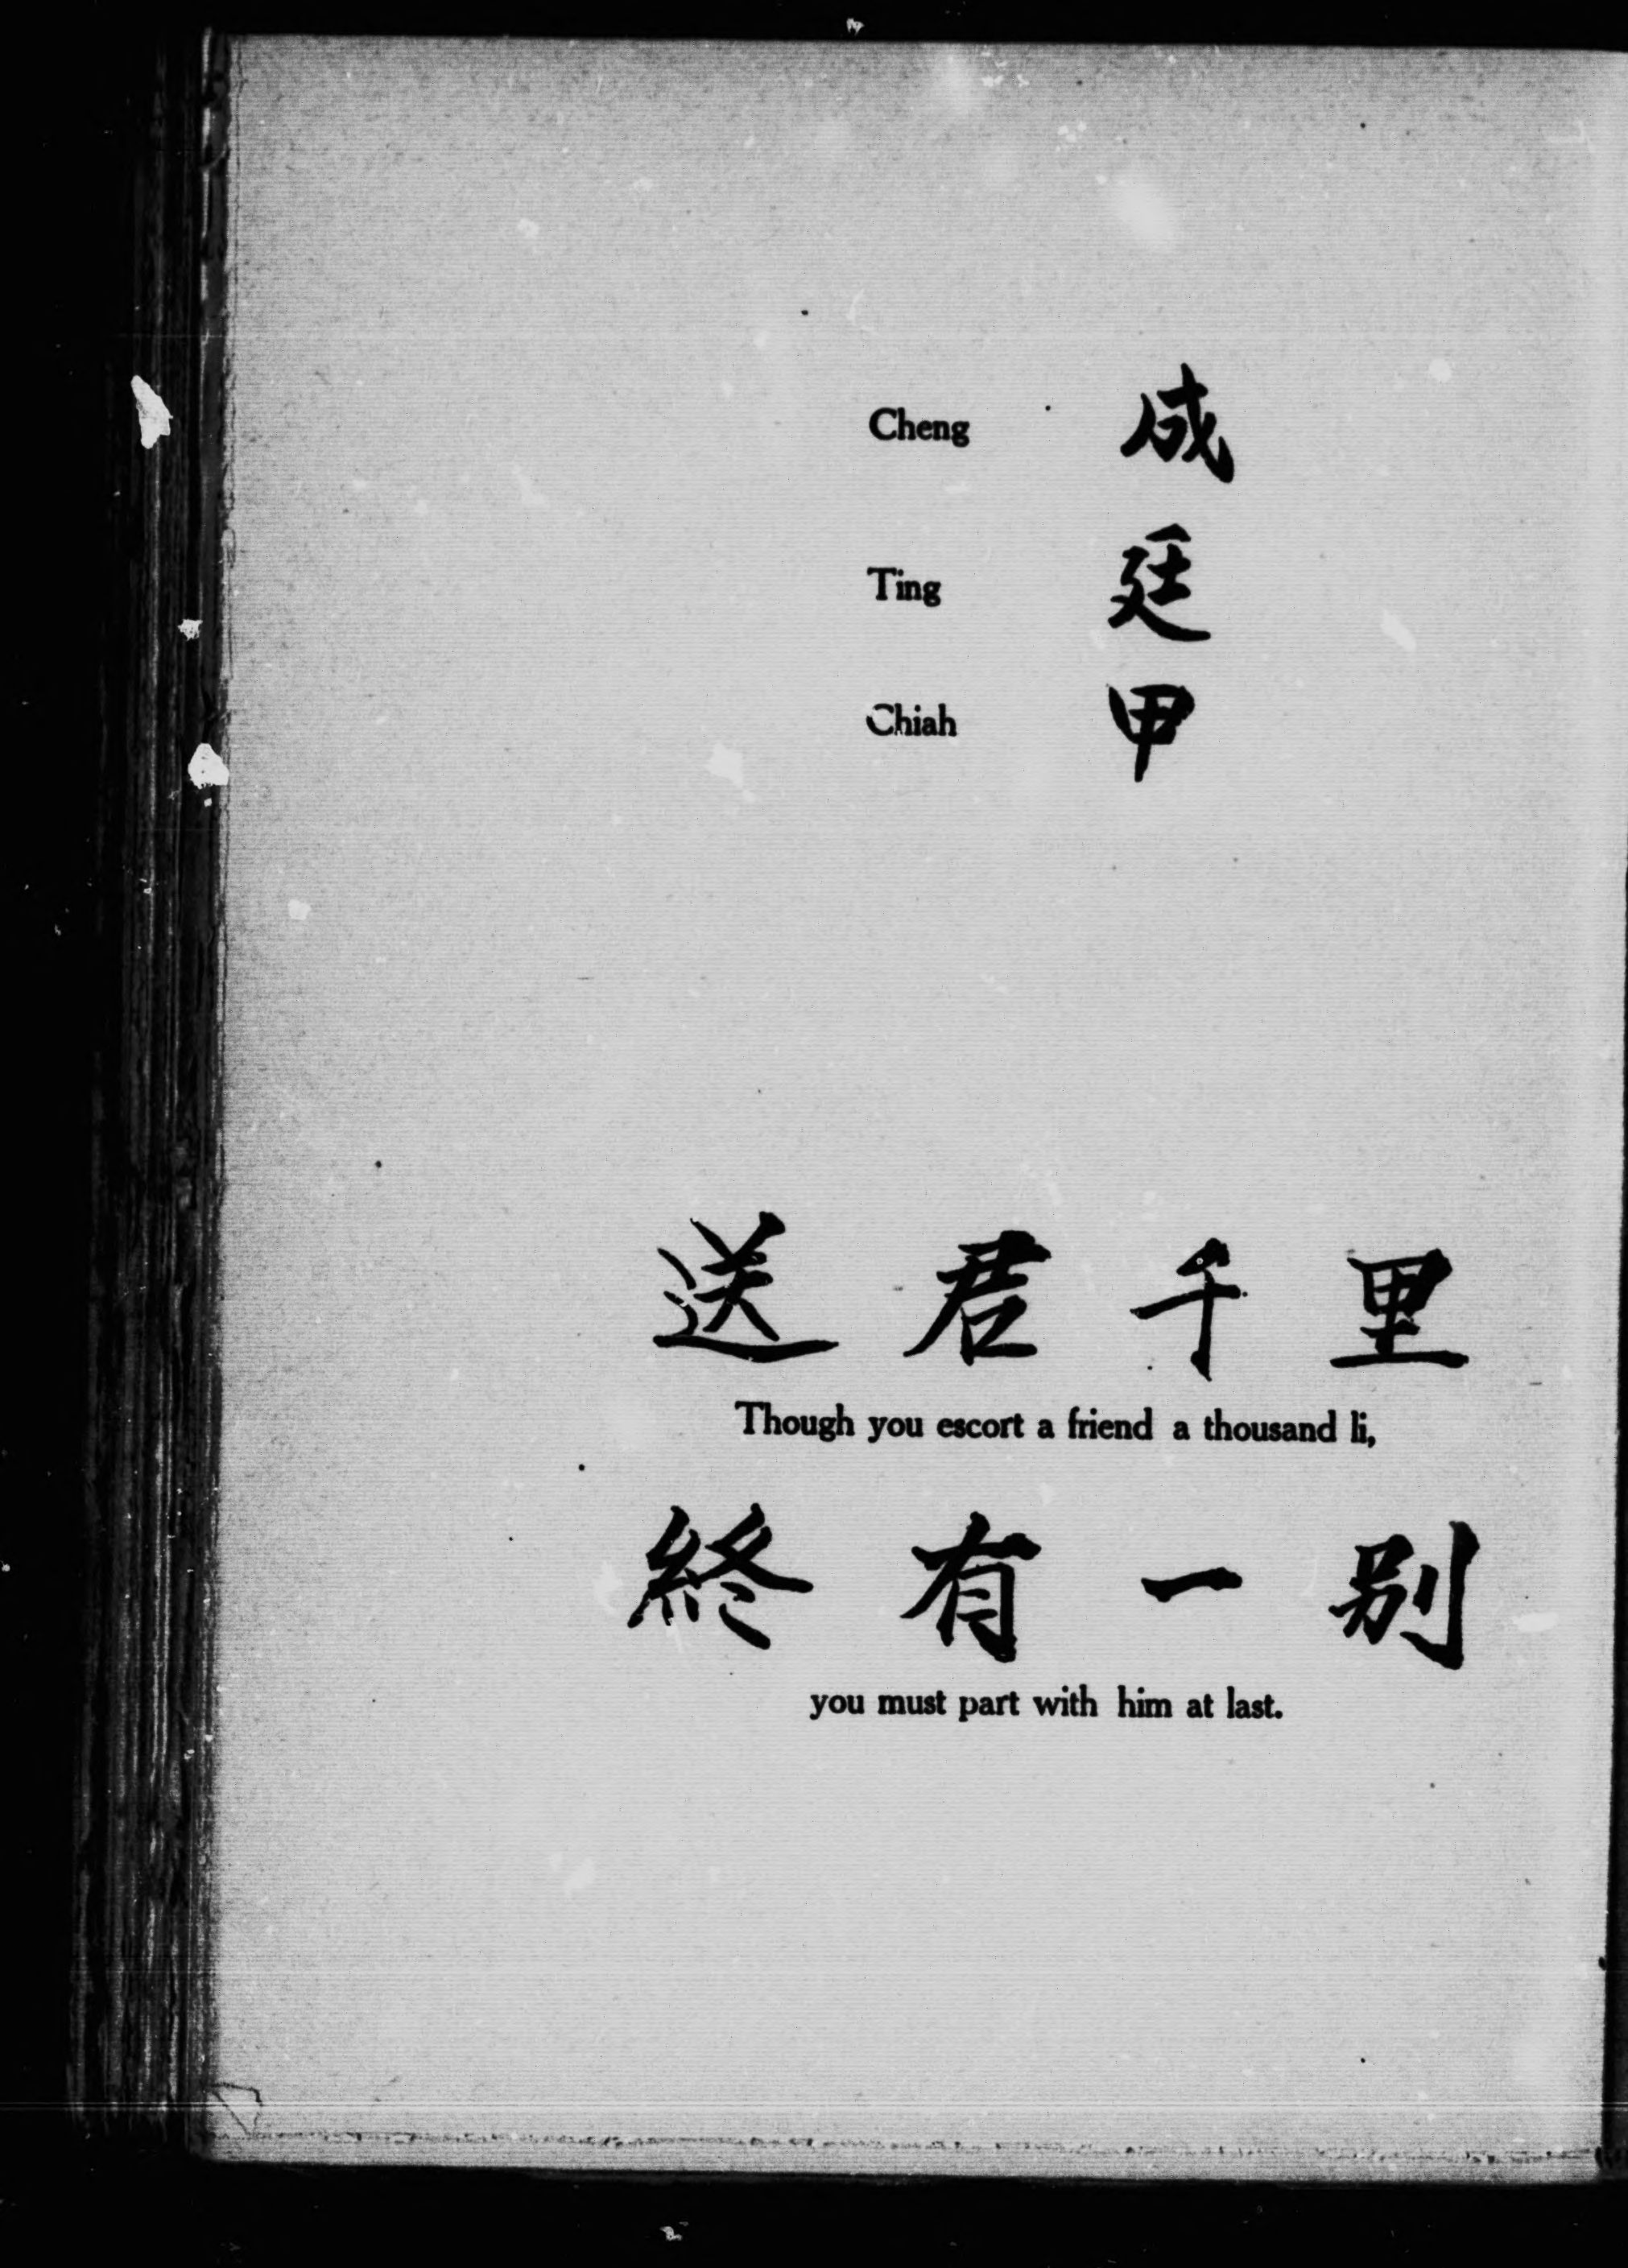 Cheng 成
Ting 廷
Chiah 甲
送君千里
Though you escort a friend a thousand li,
終有一别
you must part with him at last.